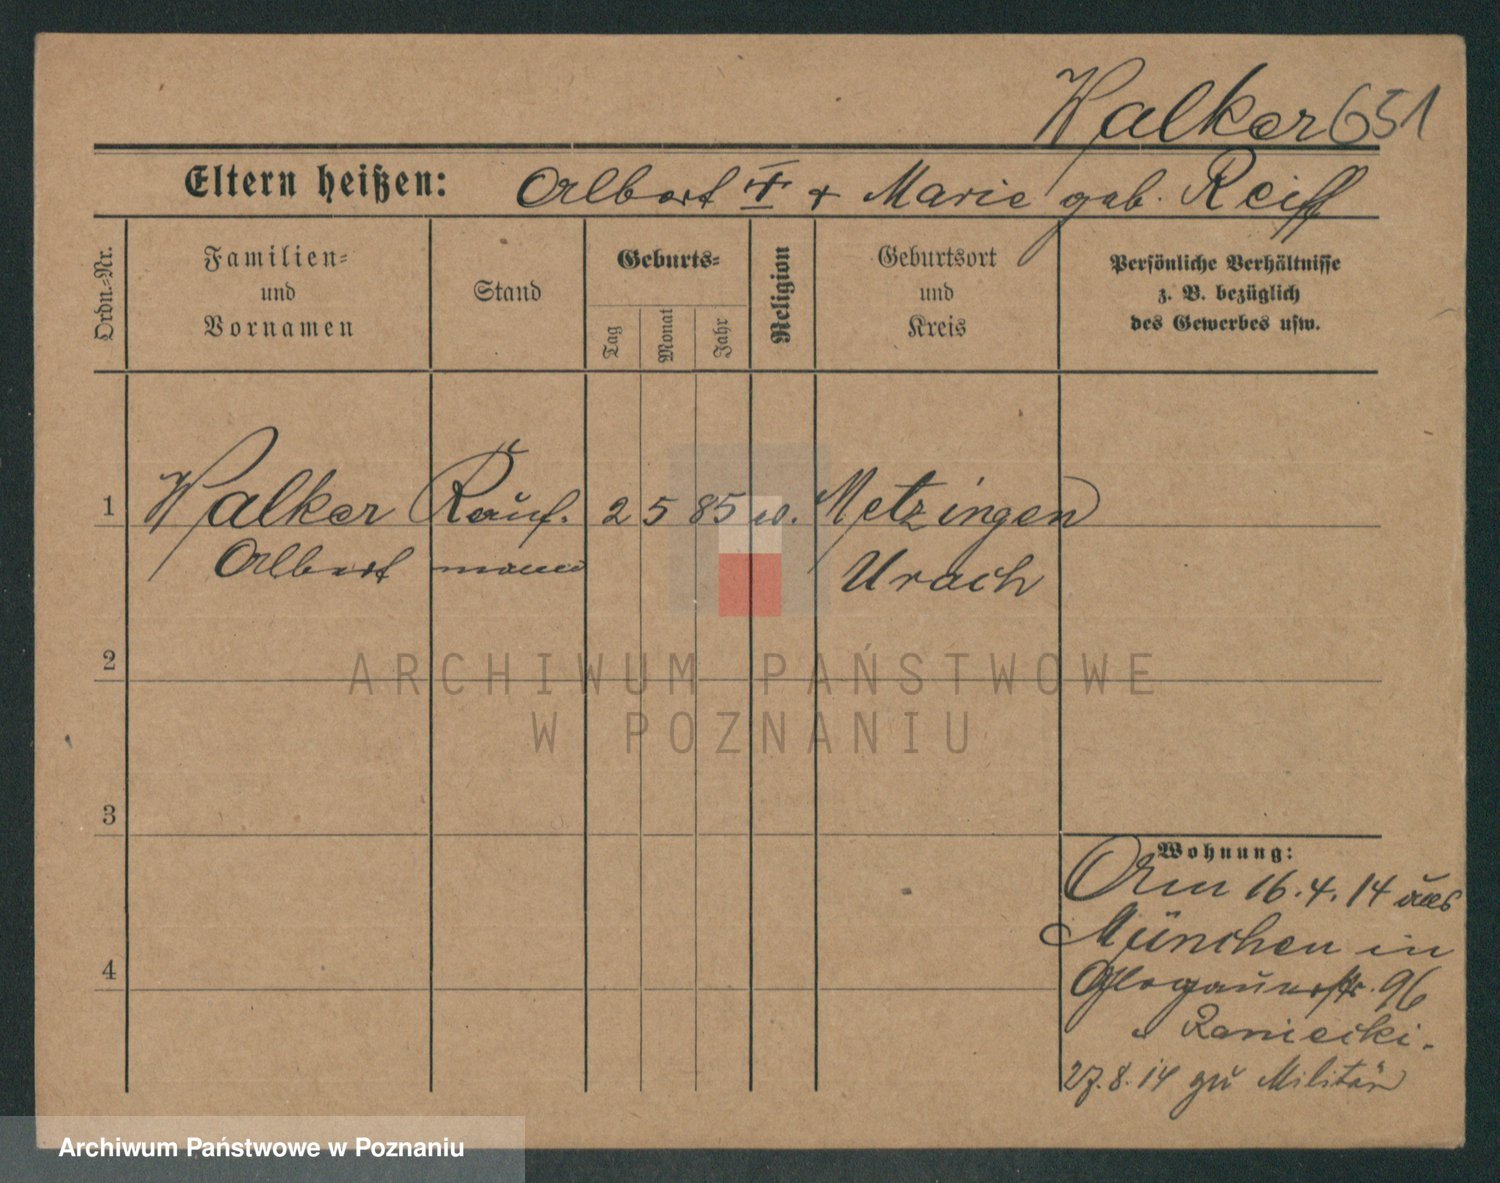 Walker 651
Eltern heißen: Albert † + Marie geb. Reiff
Ordn.-Nr.
Familien-
und
Vornamen
Stand
Geburts-
Tag
Monat
Jahr
Religion
Geburtsort
und
Kreis
Persönliche Verhältnisse
z. B. bezüglich
des Gewerbes usw.
1 Walker Kauf. 2 5 85 w. Metzingen
Albert mann Urach
2
ARCHIWUM PAŃSTWOWE
W POZNANIU
3
Wohnung:
Am 16.4.14 aus
München in
4
Glogauerstr. 96
27.8.14 zu Militär
Archiwum Państwowe w Poznaniu